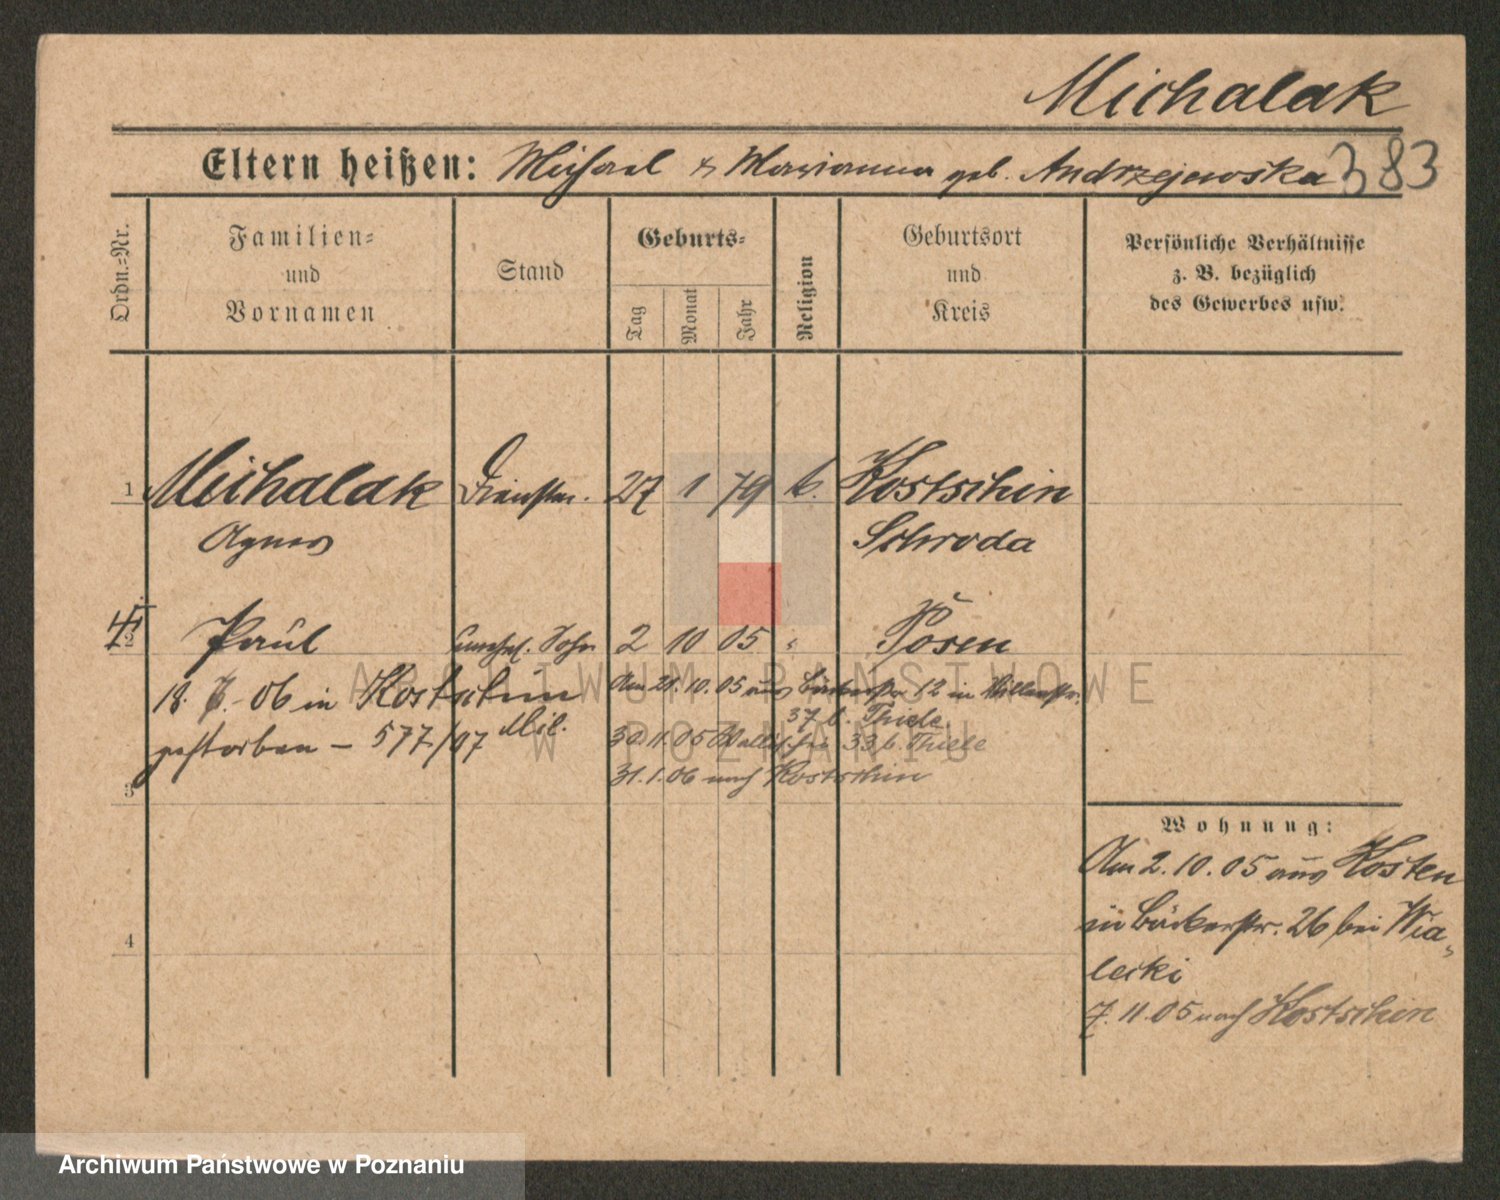 Michalak
Eltern heißen: Michael & Marianna geb. Andrzejewska 383
Ordn.-Nr.
Familien-
und
Vornamen
Stand
Geburts-
Tag
Monat
Jahr
Religion
Geburtsort
und
Kreis
Persönliche Verhältnisse
z. B. bezüglich
des Gewerbes usw.
1 Michalak 27 1 79 k. Kostschin
Agnes Schroda
2 Paul unehel. Sohn 2 10 05 " Posen
18. 06 in Kostschin
gestorben – 577/07 Mil.
Am 21.10.05 aus Bäckerstr. 12 in
37 b. Thiele
30.11.05 Wallischei 33 b. Thiele
31.1.06 nach Kostschin
3
4
Wohnung:
Am 2.10.05 aus Kosten
in Bäckerstr. 26 bei Wia-
lecki
7.11.05 nach Kostschin
ARCHIWUM PAŃSTWOWE
W POZNANIU
Archiwum Państwowe w Poznaniu